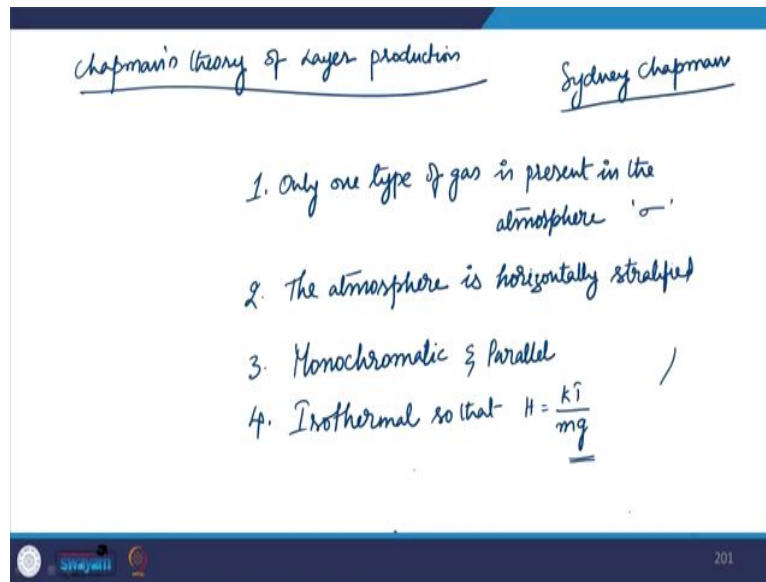 Chapman's theory of Layer production
Sydney Chapman
1. Only one type of gas is present in the
atmosphere 'σ'
2. The atmosphere is horizontally stratified
3. Monochromatic & Parallel
4. Isothermal so that H = kT/mg
swayam
201